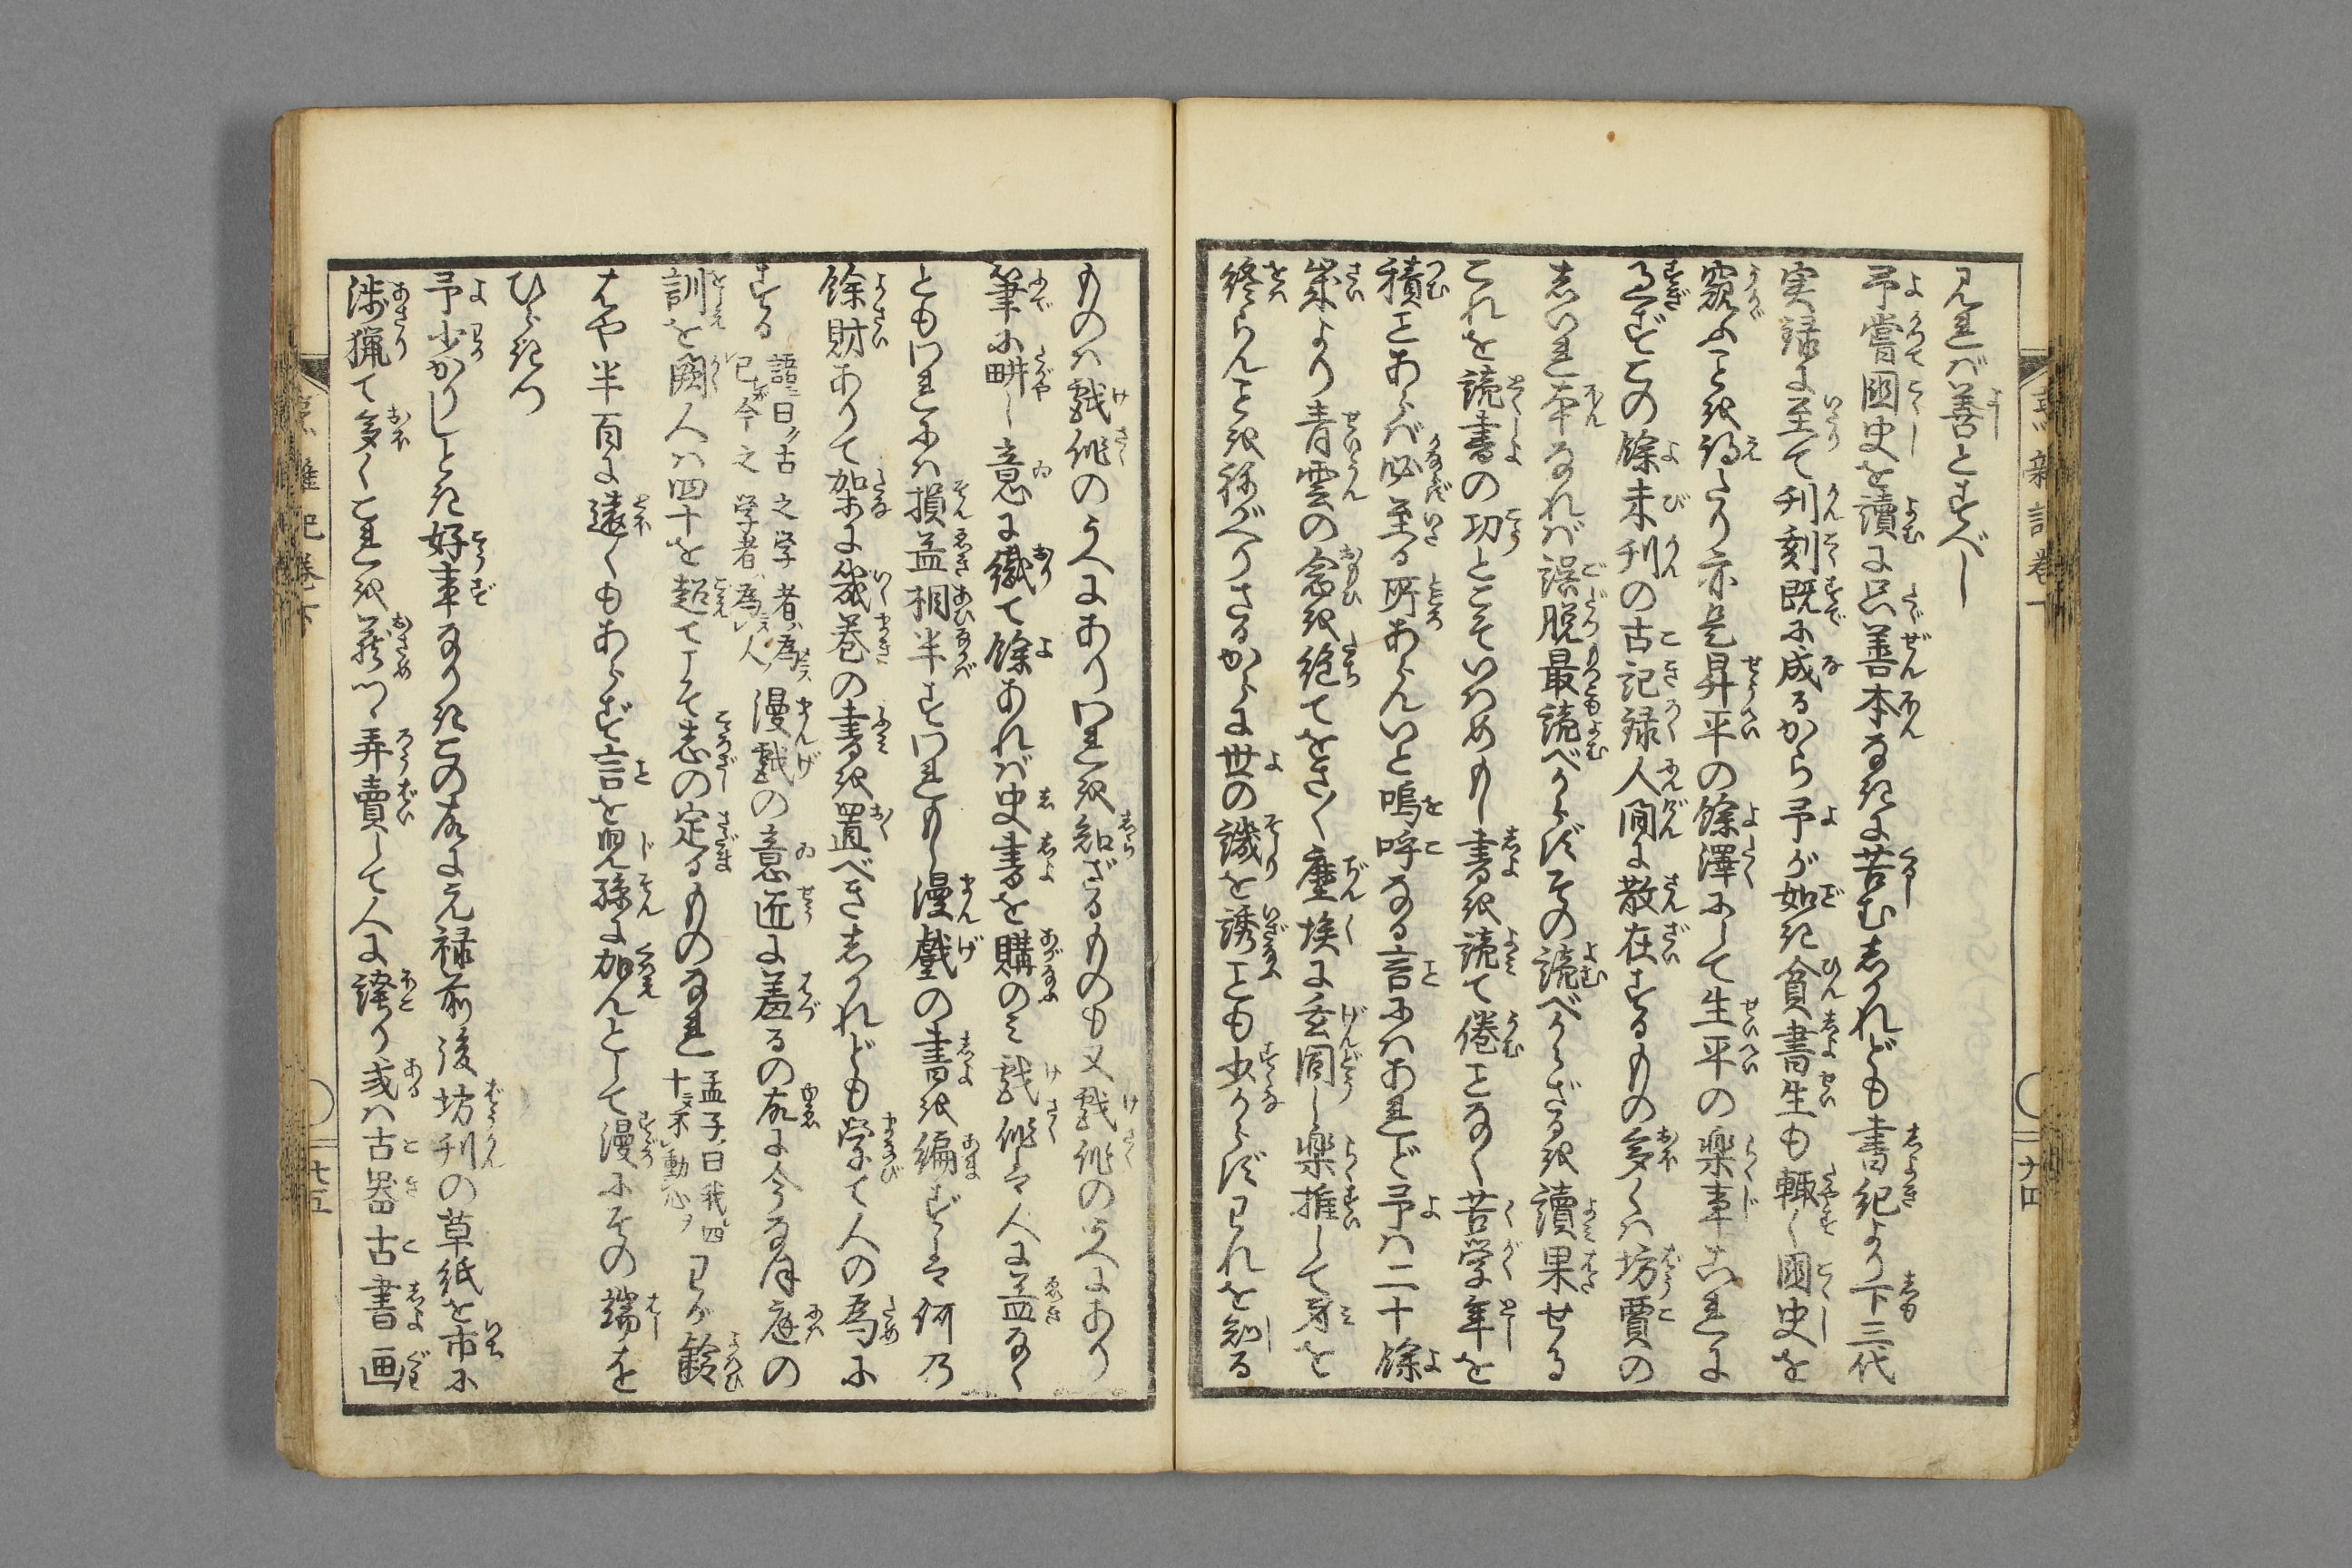 見れば善とすべし
予嘗國史を讀に只善本なきに苦むしかれども書紀より下三代
実録に至て刊刻既に成るから予が如き貧書生も輙く國史を
窺ふことを得たり亦是昇平の餘澤にして生平の楽事これに
過ずこの餘未刊の古記録人間に散在するもの多くは坊賈の
しいれ本なれば誤脱最読べからずその読べからざるを讀果せる
これを読書の功とこそいはめもし書を読て倦ことなく苦学年を
積ことあらば必至る所あらんいと嗚呼なる言にはあれど予は二十餘
歳より青雲の念を絶てをさ〳〵塵埃に玄同し楽推して身を
終らんことを祢がへりさるからに世の譏を誘ことも少からずわれを知る
ものは戯作のうへにありわれを知ざるものも又戯作のうへにあり
筆に畊し意に織て餘あれば史書を購のミ戯作は人に益なく
ともわれには損益相半すわれもし漫戯の書を編ずは何乃
餘財ありて架に幾巻の書を置べきしかれども学て人の為に
する 語曰古之学者為 己今之学者為人 漫戯の意匠に羞るの故に今なほ庭の
訓を闕人は四十を超てこそ志の定るものなれ 孟子曰我四 十不動心 わが齢
はや半百に遠くもあらず言を児孫に加んとして漫にその端を
ひらきつ
予少かりしとき好事なりきこの故に元禄前後坊刊の草紙を市に
渉猟て多くこれを蔵めつゝ弄賣して人に誇り或は古器古書画